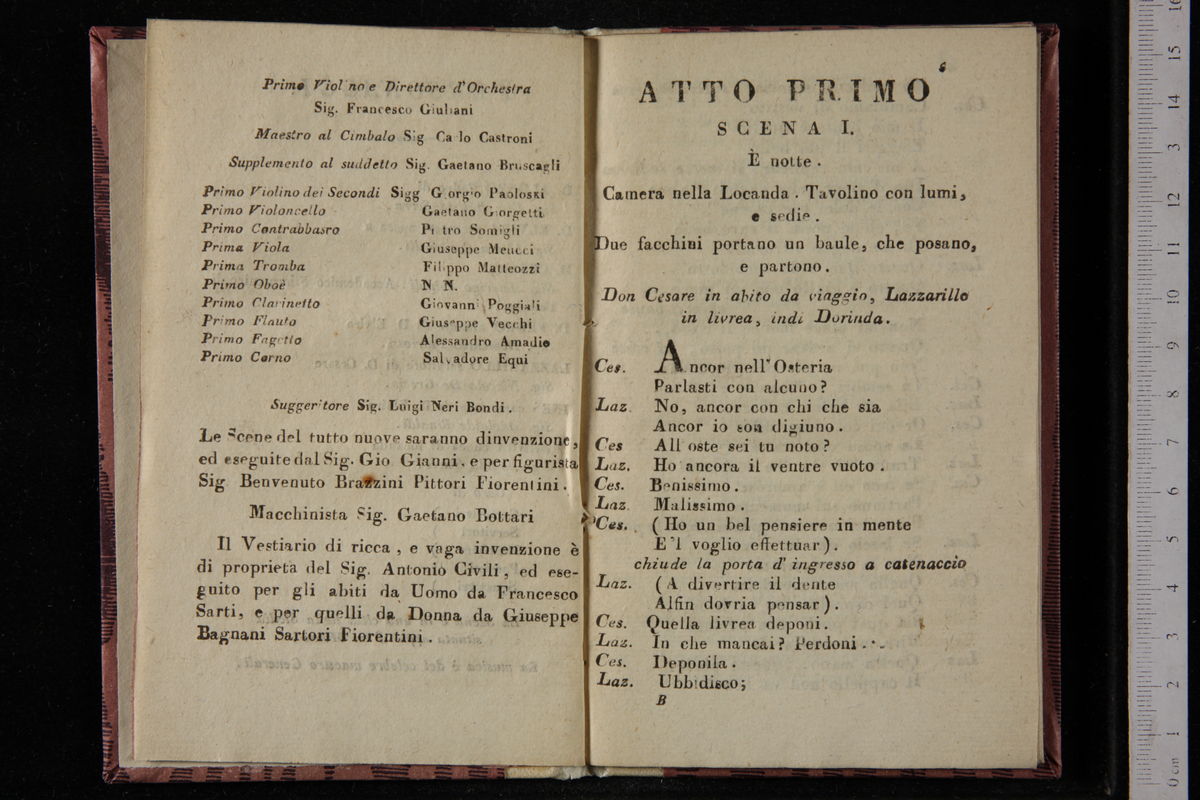 Primo Violino e Direttore d'Orchestra
Sig. Francesco Giuliani
Maestro al Cimbalo Sig Carlo Castroni
Supplemento al suddetto Sig. Gaetano Bruscagli
Primo Violino dei Secondi Sigg Giorgio Paoloski
Primo Violoncello Gaetano Giorgetti
Primo Contrabbasro Pietro Somigli
Prima Viola Giuseppe Meucci
Prima Tromba Filippo Matteozzi
Primo Oboè N N.
Primo Clarinetto Giovanni Poggiali
Primo Flauto Giuseppe Vecchi
Primo Fagotto Alessandro Amadio
Primo Corno Salvadore Equi
Suggeritore Sig. Luigi Neri Bondi.
Le Scene del tutto nuove saranno dinvenzione,
ed eseguite dal Sig. Gio Gianni. e per figurista
Sig Benvenuto Brazzini Pittori Fiorentini.
Macchinista Sig. Gaetano Bottari
Il Vestiario di ricca, e vaga invenzione è
di proprietà del Sig. Antonio Civili, ed ese-
guito per gli abiti da Uomo da Francesco
Sarti, e per quelli da Donna da Giuseppe
Bagnani Sartori Fiorentini.
ATTO PRIMO
SCENA I.
È notte.
Camera nella Locanda. Tavolino con lumi,
e sedie.
Due facchini portano un baule, che posano,
e partono.
Don Cesare in abito da viaggio, Lazzarillo
in livrea, indi Dorinda.
Ces. Ancor nell'Osteria
Parlasti con alcuno?
Laz. No, ancor con chi che sia
Ancor io son digiuno.
Ces All'oste sei tu noto?
Laz. Ho ancora il ventre vuoto.
Ces. Benissimo.
Laz Malissimo.
Ces. (Ho un bel pensiere in mente
E'l voglio effettuar).
chiude la porta d'ingresso a catenaccio
Laz. (A divertire il dente
Alfin dovria pensar).
Ces. Quella livrea deponi.
Laz. In che mancai? Perdoni..
Ces. Deponila.
Laz. Ubbidisco;
B
0 cm 1 2 3 4 5 6 7 8 9 10 11 12 3 14 15 16